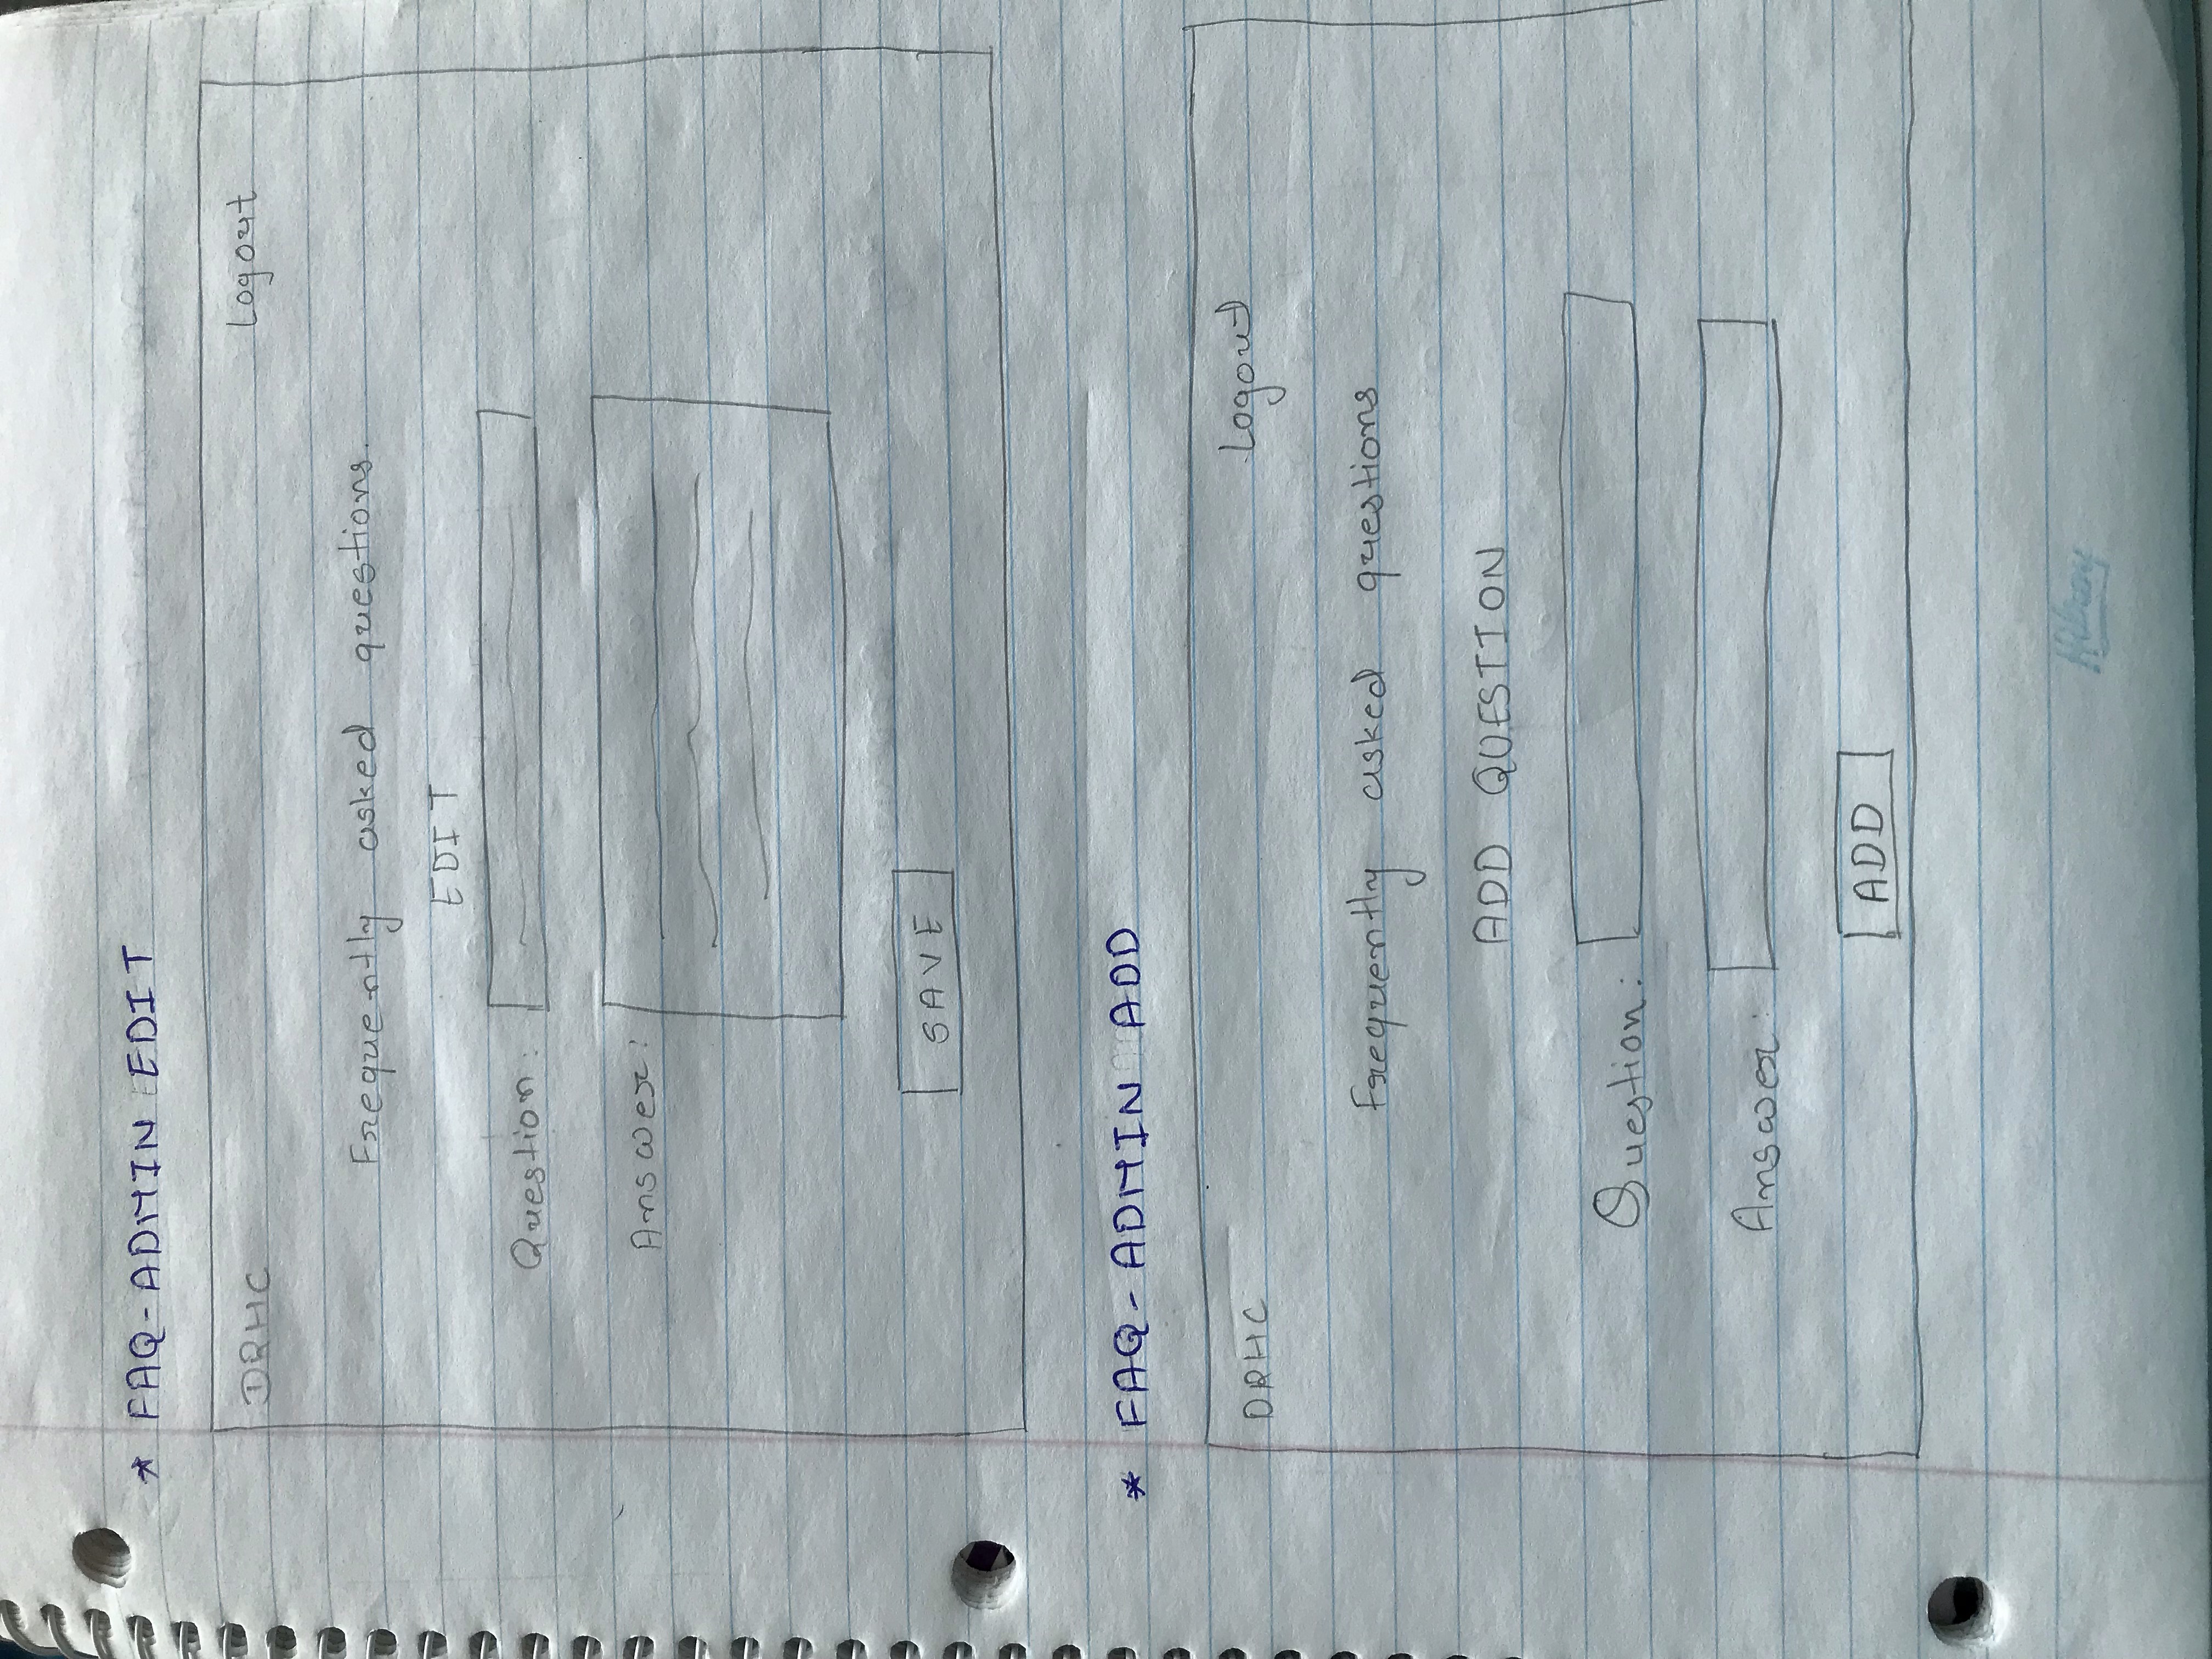 * FAQ-ADMIN EDIT
DRHC Logout
Frequently asked questions.
EDIT
Question:
Answer:
SAVE
* FAQ-ADMIN ADD
DRHC Logout
Frequently asked questions
ADD QUESTION
Question:
Answer:
ADD
Hilroy